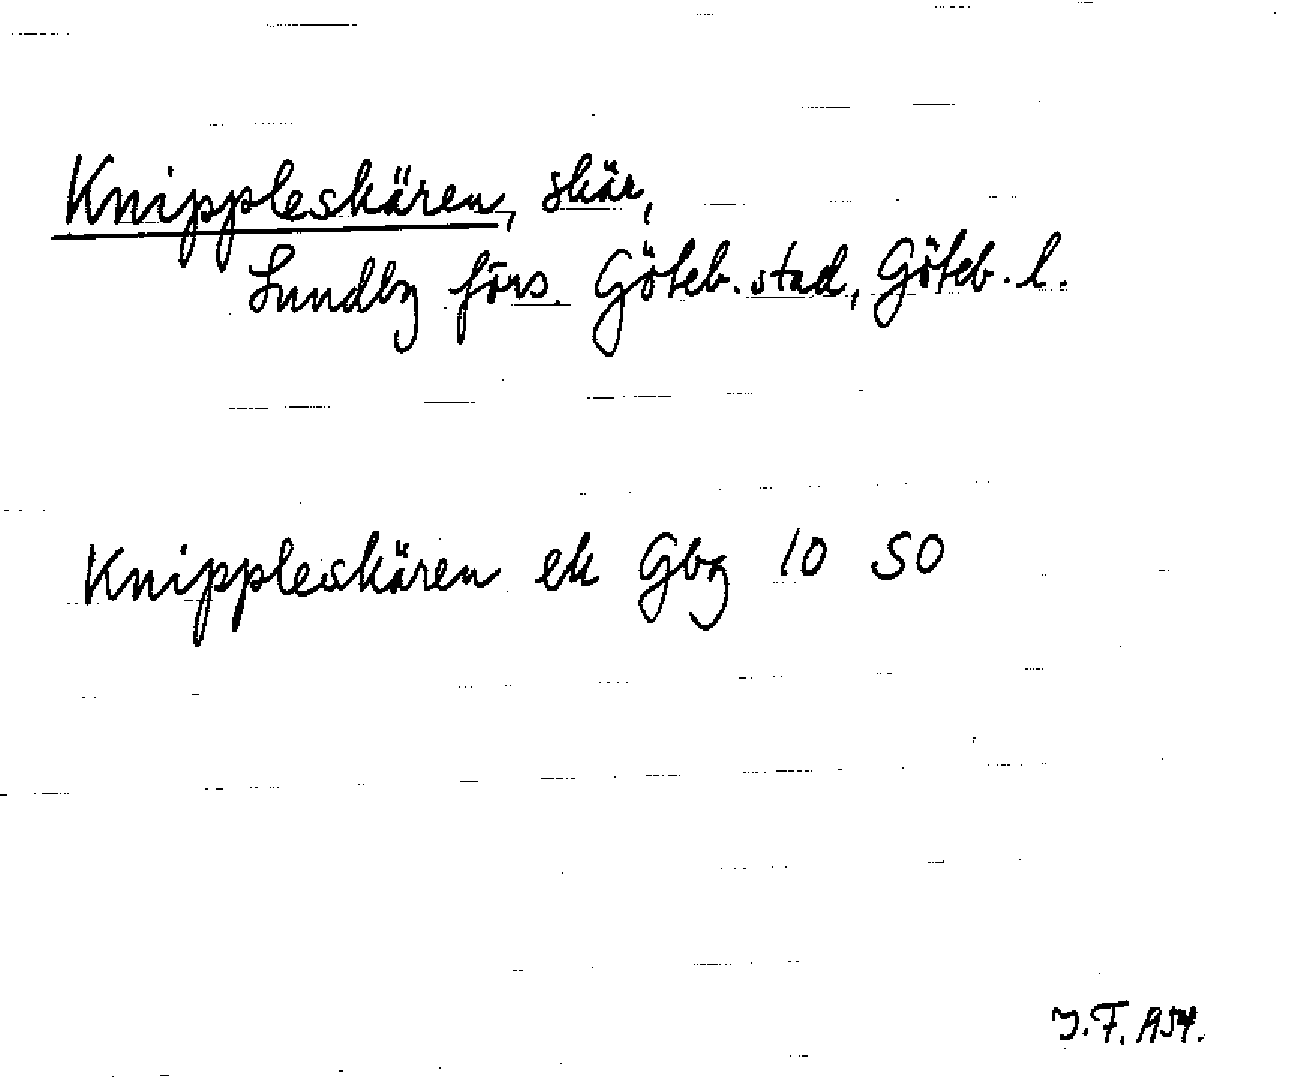 Knippleskären, skär,
Lundby förs. Göteb. stad, Göteb. l.
Knippleskären ek Gbg 10 SO
J.F. 1954.